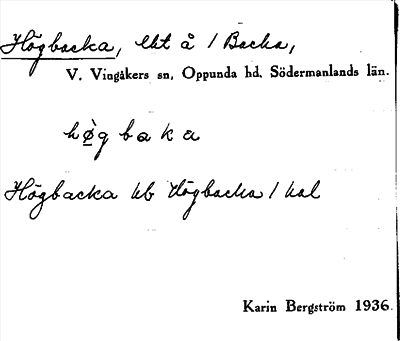 Högbacka, lht å 1 Backa,
V. Vingåkers sn, Oppunda hd, Södermanlands län.
hø̀gbaka
Högbacka hb Högbacka 1 hal
Karin Bergström 1936.